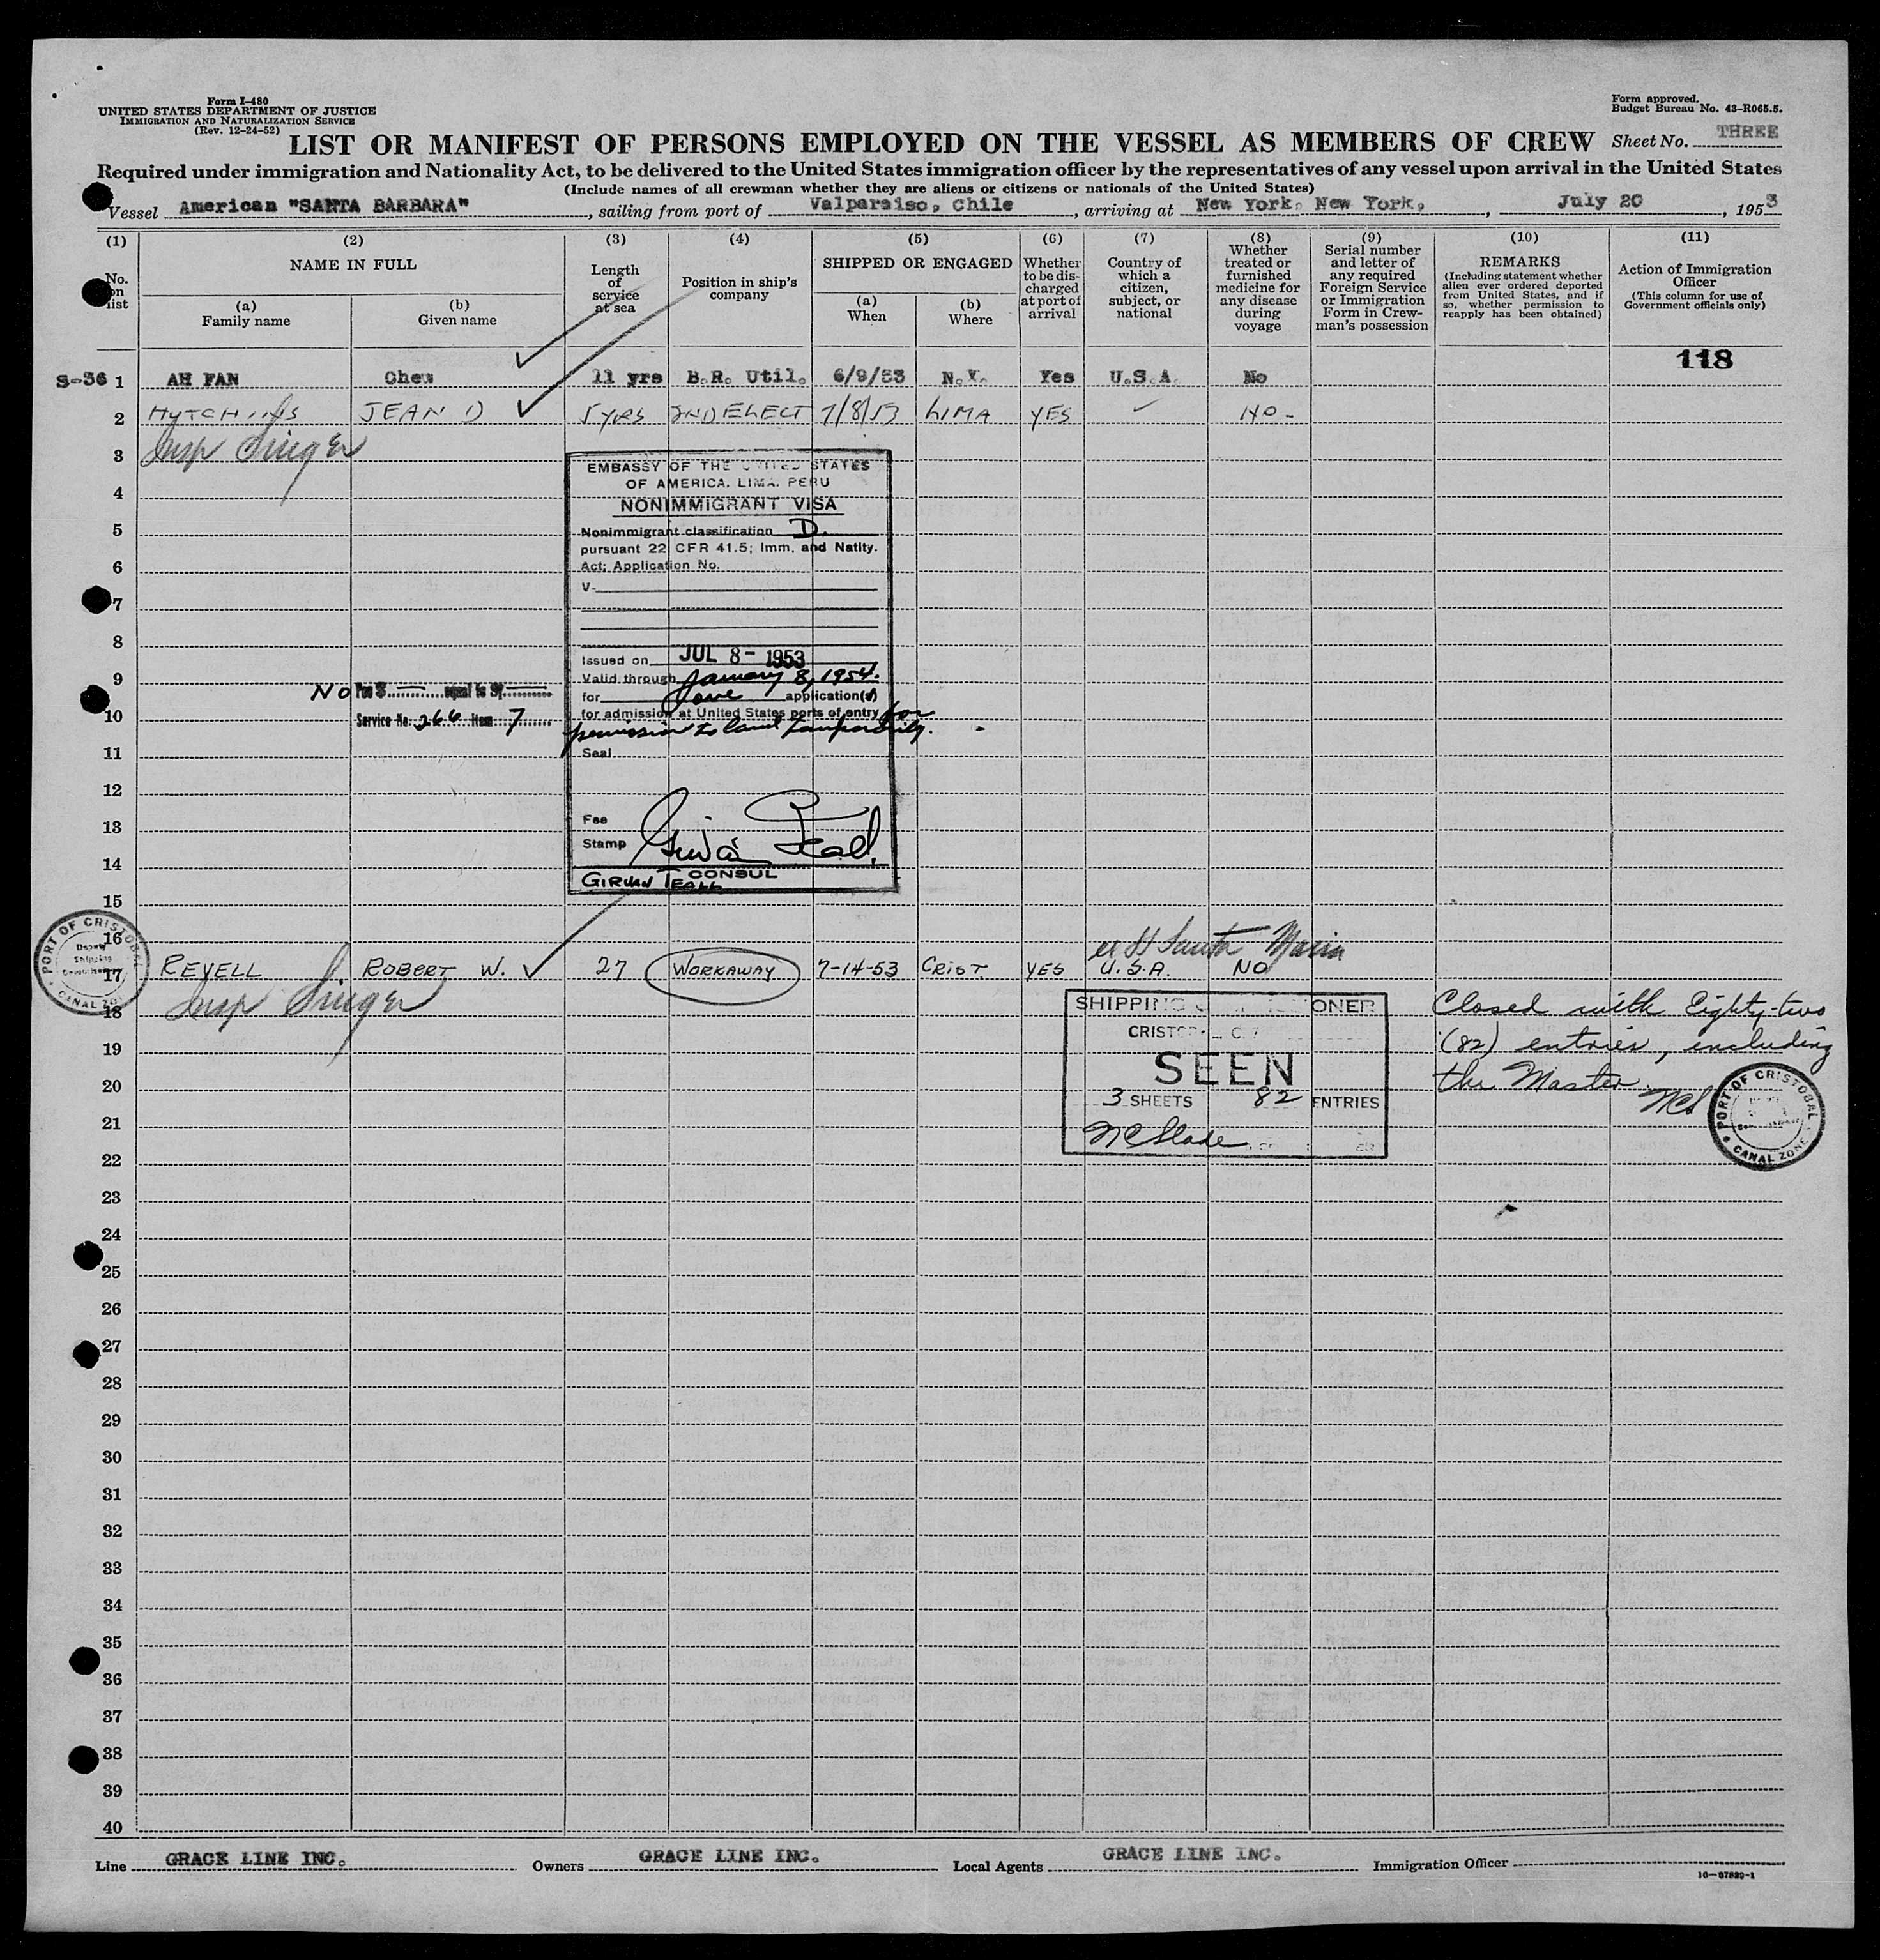 Form I-480
UNITED STATES DEPARTMENT OF JUSTICE
IMMIGRATION AND NATURALIZATION SERVICE
(Rev. 12-24-52)
Form approved.
Budget Bureau No. 43-R065.5.
LIST OR MANIFEST OF PERSONS EMPLOYED ON THE VESSEL AS MEMBERS OF CREW
Sheet No. THREE
Required under immigration and Nationality Act, to be delivered to the United States immigration officer by the representatives of any vessel upon arrival in the United States
(Include names of all crewman whether they are aliens or citizens or nationals of the United States)
Vessel American "SANTA BARBARA", sailing from port of Valparaiso, Chile, arriving at New York, New York, July 20, 1953
(1) (2) (3) (4) (5) (6) (7) (8) (9) (10) (11)
No. on list
NAME IN FULL
(a) Family name
(b) Given name
Length of service at sea
Position in ship's company
SHIPPED OR ENGAGED
(a) When
(b) Where
Whether to be discharged at port of arrival
Country of which a citizen, subject, or national
Whether treated or furnished medicine for any disease during voyage
Serial number and letter of any required Foreign Service or Immigration Form in Crewman's possession
REMARKS
(Including statement whether alien ever ordered deported from United States, and if so, whether permission to reapply has been obtained)
Action of Immigration Officer
(This column for use of Government officials only)
118
S-36 1 AH FAN Chew 11 yrs B.R. Util. 6/9/53 N.Y. Yes U.S.A. No
2 HUTCHINGS JEAN D ✓ 5 YRS 2ND ELECT 7/8/53 LIMA YES ✓ NO -
3 Insp Singer
4
5
6
7
8
9
10
11
12
13
14
15
EMBASSY OF THE UNITED STATES
OF AMERICA, LIMA, PERU
NONIMMIGRANT VISA
Nonimmigrant classification D.
pursuant 22 CFR 41.5; Imm. and Natlty.
Act; Application No.
V-
Issued on JUL 8 - 1953
Valid through January 8, 1954.
for one application(s)
for admission at United States ports of entry for
permission to land temporarily.
Seal
Fee
Stamp
CONSUL
No Fee $ equal to S/
Service No. 266 Item 7
16 ex SS Santa Maria
17 REVELL ROBERT W. ✓ 27 WORKAWAY 7-14-53 CRIST YES U.S.A. NO
18 Insp Singer
PORT OF CRISTOBAL
CANAL ZONE
SHIPPING COMMISSIONER
CRISTOBAL, C Z
SEEN
3 SHEETS 82 ENTRIES
Closed with Eighty-two
(82) entries, including
the Master.
PORT OF CRISTOBAL
CANAL ZONE
19
20
21
22
23
24
25
26
27
28
29
30
31
32
33
34
35
36
37
38
39
40
Line GRACE LINE INC. Owners GRACE LINE INC. Local Agents GRACE LINE INC. Immigration Officer
16-67829-1